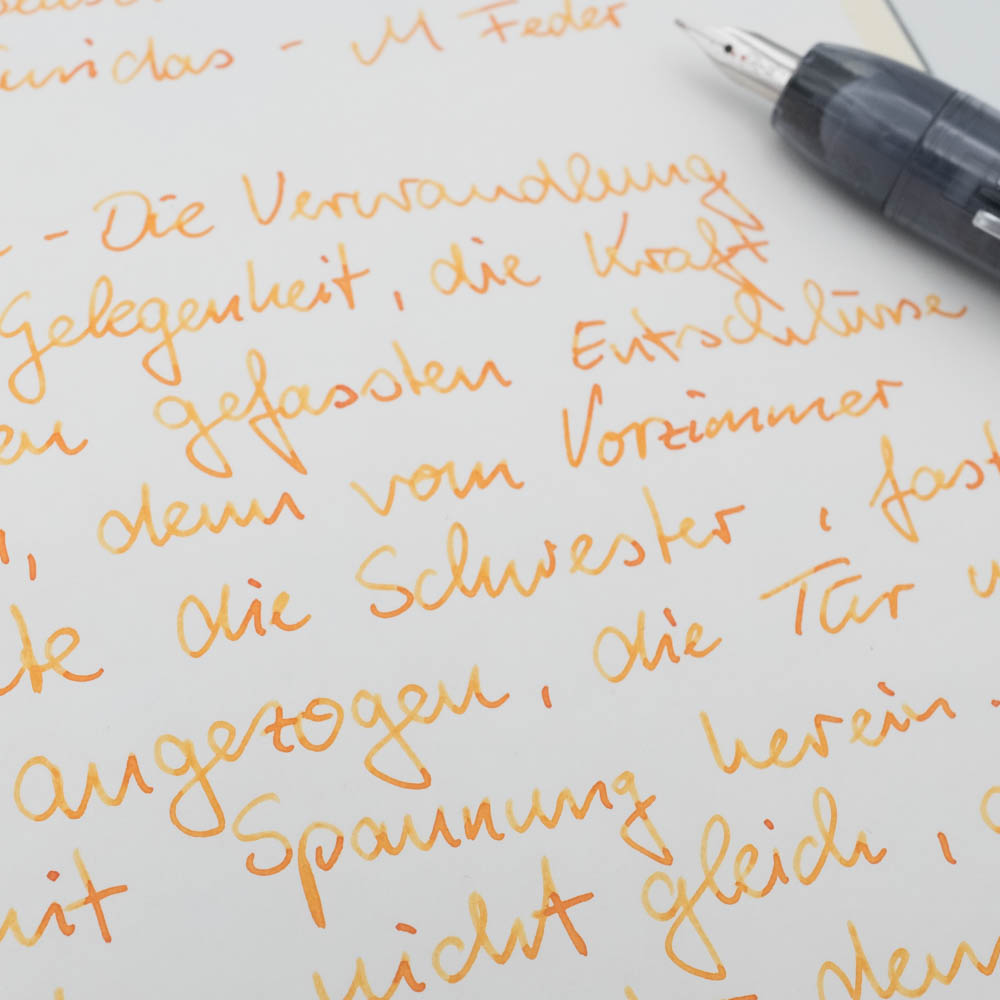 - M Feder
- Die Verwandlung
Gelegenheit, die Kraft
gefassten Entschlüsse
, denn vom Vorzimmer
die Schwester, fast
angezogen, die Tür
mit Spannung herein.
nicht gleich,